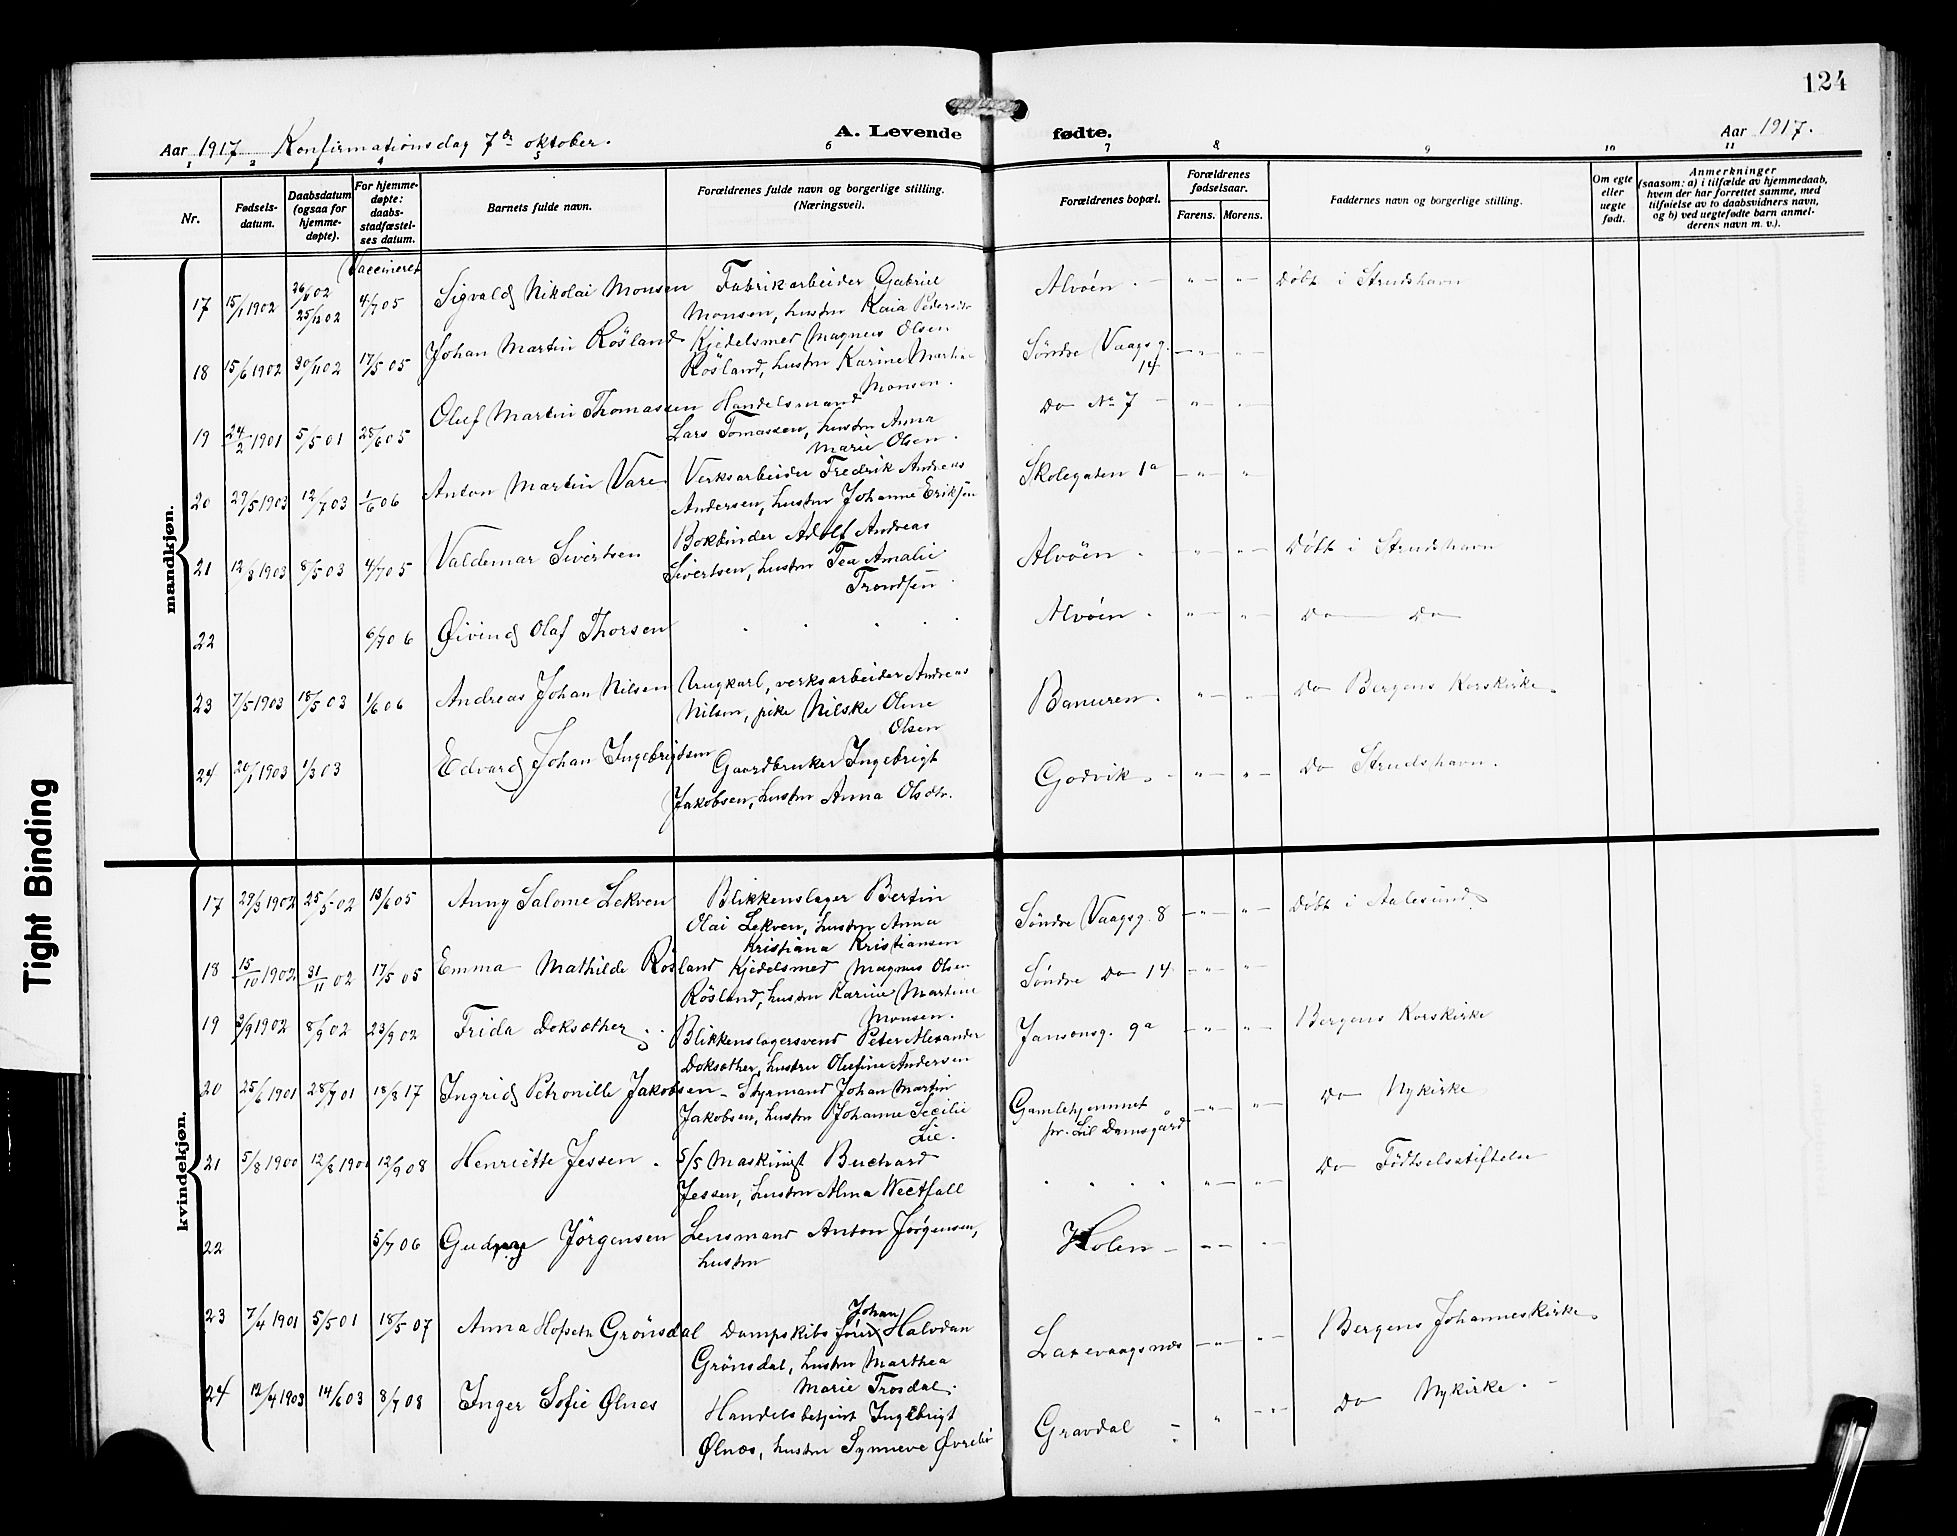 124
Aar 1917 Konfirmationsdag 7de oktober.
A. Levende fødte.
Aar 1917.
1 2 3 4 5 6 7 8 9 10 11
Nr.
Fødsels-
datum.
Daabsdatum
(ogsaa for
hjemme-
døpte).
For hjemme-
døpte:
daabs-
stadfæstel-
ses datum.
Barnets fulde navn.
Forældrenes fulde navn og borgerlige stilling.
(Næringsvei).
Forældrenes bopæl.
Forældrenes
fødselsaar.
Farens. Morens.
Faddernes navn og borgerlige stilling.
Om egte
eller
uegte
født.
Anmerkninger
(saasom: a) i tilfælde av hjemmedaab,
hvem der har forrettet samme, med
tilføielse av to daabsvidners navn,
og b) ved uegtefødte barn anmel-
derens navn m. v.).
mandkjøn.
(Vaccineret
17 15/1 1902 26/1 02 25/12 02 4/7 05 Sigvald Nikolai Monsen Fabrikarbeider Gabriel Alvöen. - " - " - Döbt i Strudshavn
Monsen, hustru Kaia Pedersdtr
18 15/6 1902 30/11 02 17/5 05 Johan Martin Rösland Kjedelsmed Magnus Olsen Söndre Vaagsg. 14 - " - " -
Rösland, hustru Karine Martine
Monsen.
19 24/2 1901 5/5 01 28/6 05 Oluf Martin Thomassen Handelsmand Do No 7 - " - " -
Lars Tomassen, hustru Anna
Marie Olsen.
20 29/5 1903 12/7 03 1/6 06 Anton Martin Vare Verksarbeider Fredrik Andreas Skolegaten 1a - " - "
Andersen, hustru Johanne Eriksen
21 12/3 1903 8/5 03 4/7 05 Valdemar Sivertsen Bokbinder Adolf Andreas Alvöen. - " - " - Döbt i Strudshavn
Sivertsen, hustru Tea Amalie
Trondsen
22 6/7 06 Øivind Olaf Thorsen . . . . Alvöen. - " - " - Do Do
23 7/5 1903 18/5 03 1/6 06 Andreas Johan Nilsen Ungkarl, verksarbeider Andreas Banuren. - " - " - Do Bergens Korskirke.
Nilsen, pike Nilske Oline
Olsen
24 20/1 1903 1/3 03 Edvard Johan Ingebrigtsen Gaardbruker Ingebrigt Godvik. - " - " - Do Strudshavn.
Jakobsen, hustru Anna Olsdtr.
kvindekjøn.
17 29/3 1902 25/5 02 13/6 05 Anny Salome Lekven Blikkenslager Bertin Söndre Vaagsg. 8 - " - " - Döbt i Aalesund
Olai Lekven, hustru Anna
Kristiana Kristiansen
18 15/10 1902 31/11 02 17/5 05 Emma Mathilde Rösland Kjedelsmed Magnus Olsen Söndre Do 14 - " - " -
Rösland, hustru Karine Martine
Monsen.
19 3/9 1902 8/9 02 23/9 02 Frida Doksæther . . Blikkenslagersvend Peter Alexander Jansonsg. 9a - " - " - Bergens Korskirke
Doksæther, hustru Olufine Andersen
20 25/6 1901 28/7 01 18/8 17 Ingrid Petronille Jakobsen - Styrmand Johan Martin Gamlehjemmet - " - " - Do Nykirke
Jakobsen, hustru Johanne Secilie pr. Lil Damsgård
Lie.
21 5/8 1900 12/8 1900 12/9 08 Henriette Jessen. S/S Maskinist Buchard . . . . - " - " - Do Födselsstiftelse
Jessen, hustru Alma Westfall
22 5/7 06 Gudny Jörgensen Lensmand Anton Jörgensen, Holen - " - " -
hustru
23 7/4 1901 5/5 01 18/5 07 Anna Hopseth Grönsdal Dampskibsförer Johan Halvdan Laxevaagsnes - " - " - Bergens Johanneskirke.
Grönsdal, hustru Marthea
Marie Trosdal.
24 12/4 1903 14/6 03 8/7 08 Inger Sofie Ølnes Handelsbetjent Ingebrigt Gravdal - " - " - Do Nykirke. -
Ølnes, hustru Synneve Øvrebö
Tight Binding